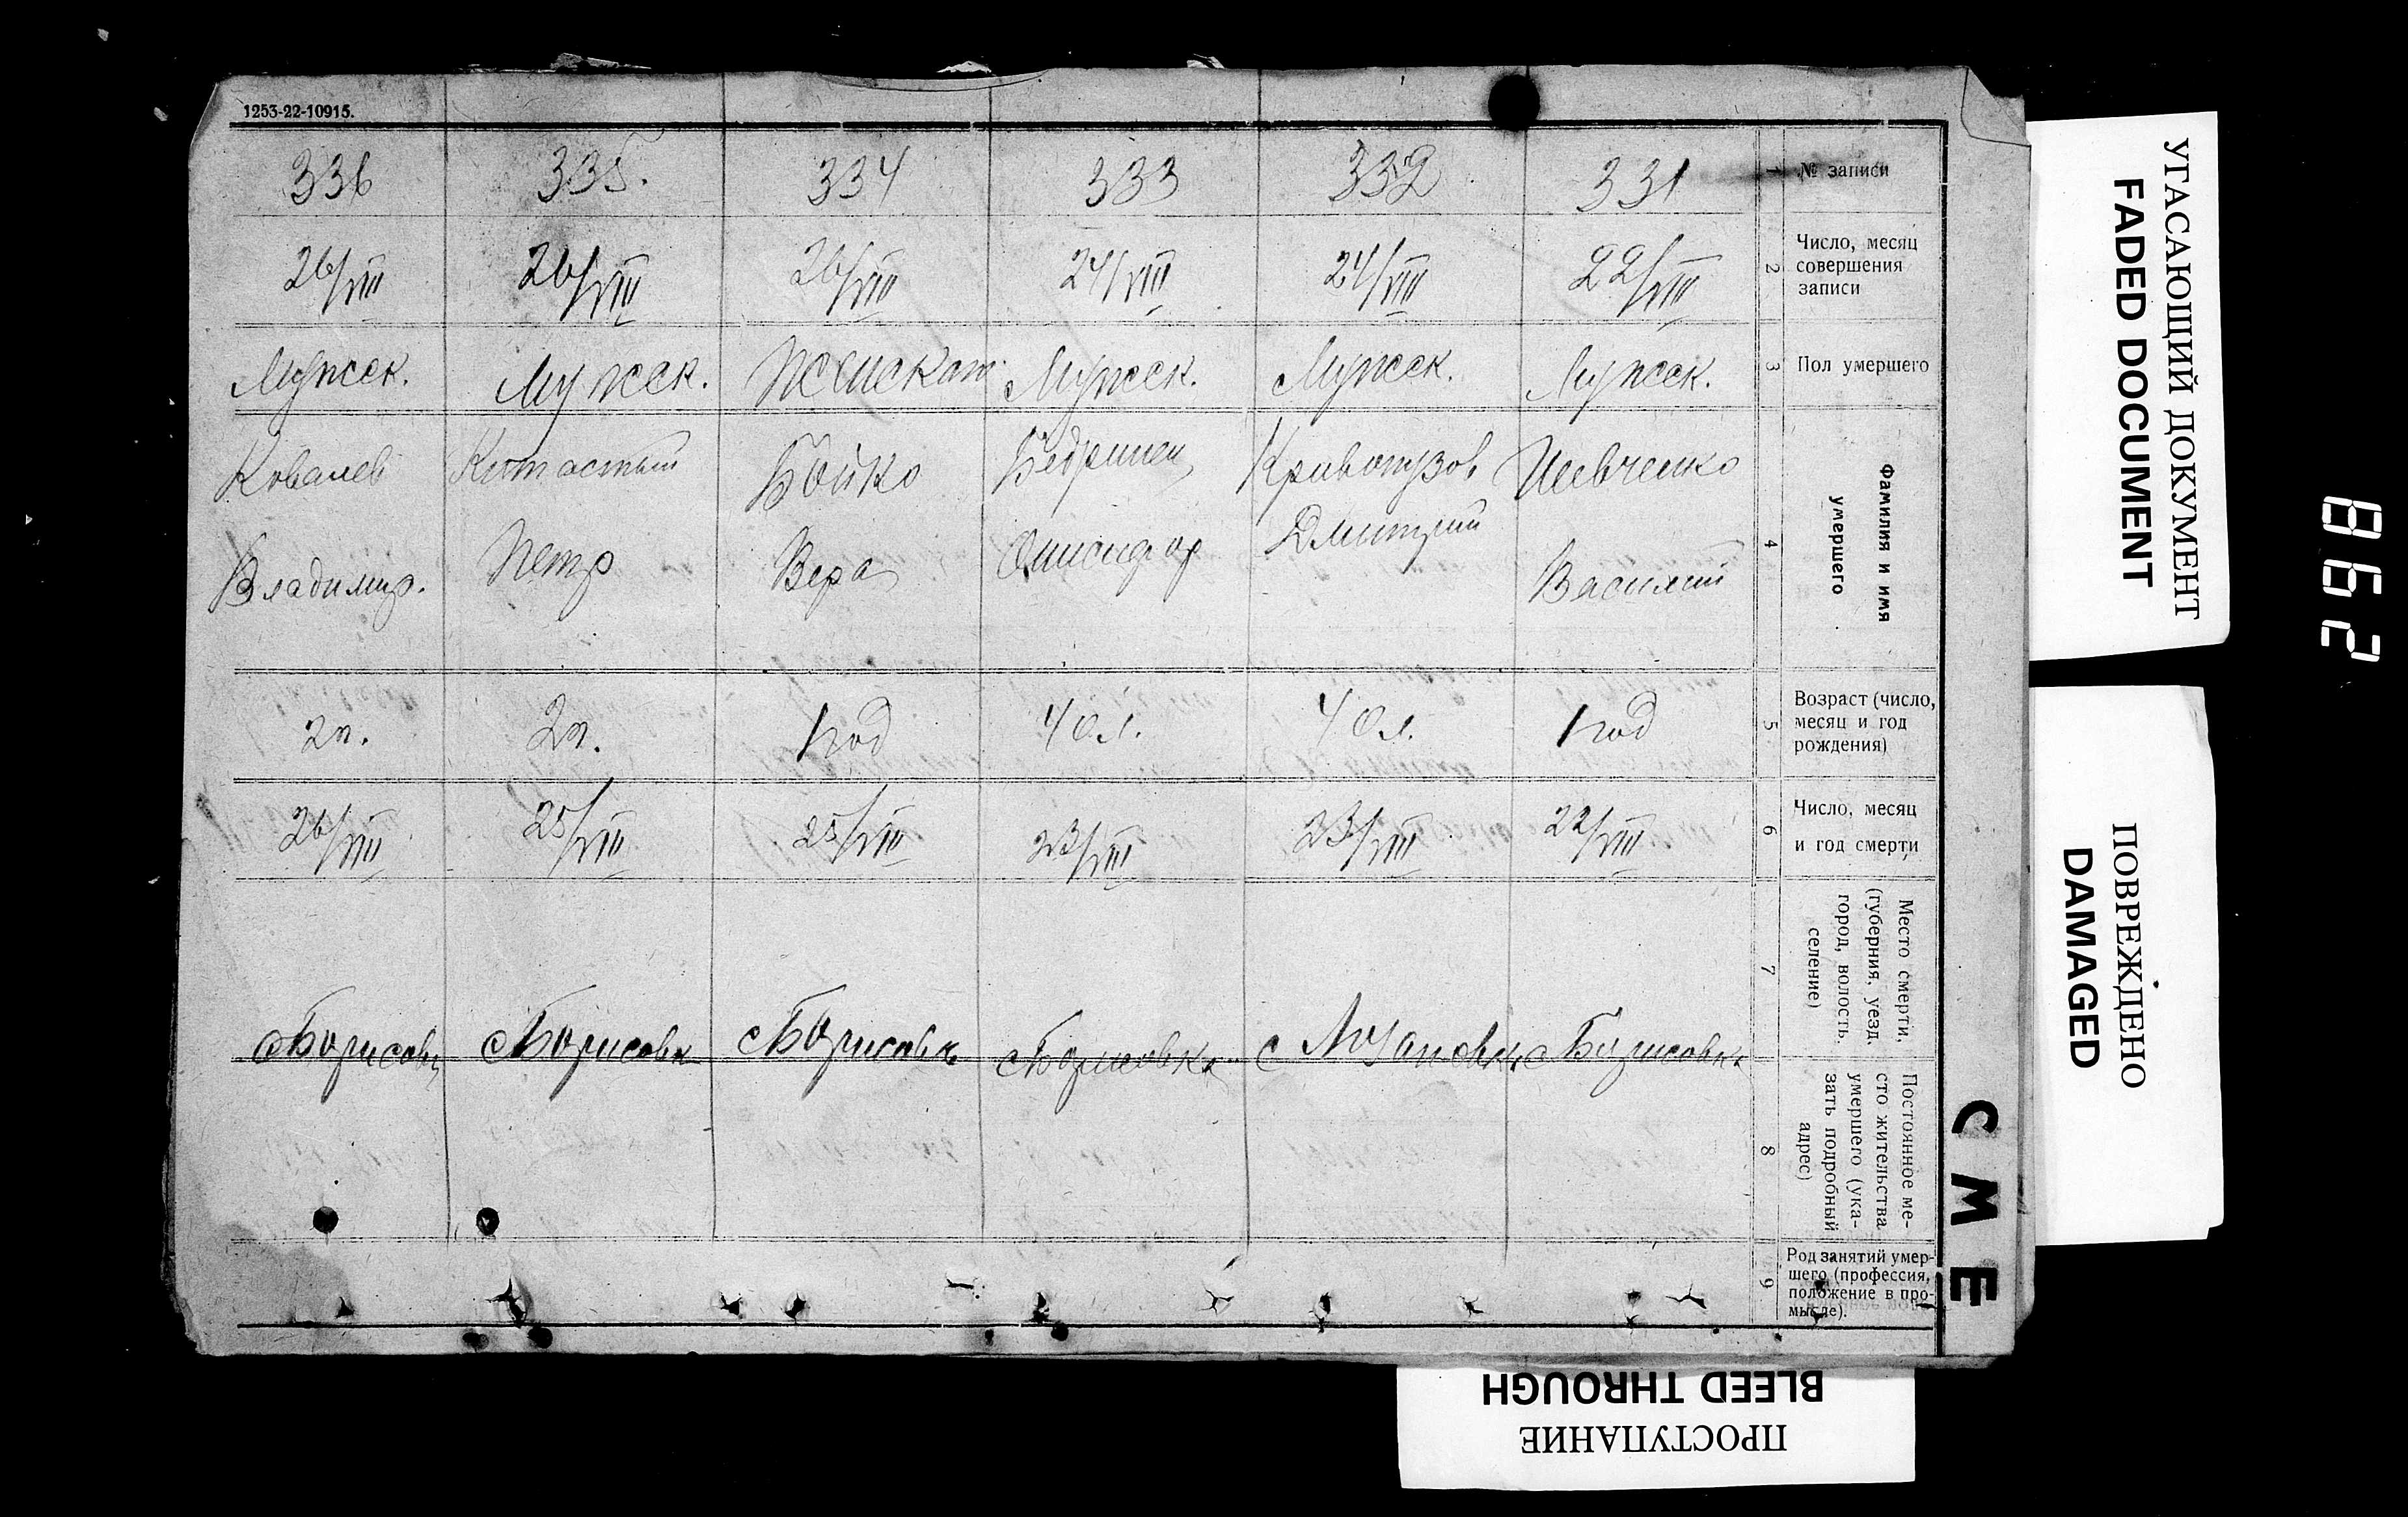 1253-22-10915.
336
335.
334
333
332
331
1
№ записи
26/VIII
26/VIII
26/VIII
24/VIII
24/VIII
22/VIII
2
Число, месяц
совершения
записи
Мужск.
Мужск.
Женская
Мужск.
Мужск.
Мужск.
3
Пол умершего
Ковалев
Владимир.
Петр
Бойко
Вера
Онисифор
Кривопузов
Дмитрий
Шевченко
Василий
4
Фамилия и имя
умершего
2г.
2г.
1 год
40 л.
40 л.
1 год
5
Возраст (число,
месяц и год
рождения)
26/VIII
25/VIII
25/VIII
23/VIII
23/VIII
22/VIII
6
Число, месяц
и год смерти
с Борисовк
с Борисовк
с Борисовк
с Борисовка
с
с Борисовка
7
Место смерти,
(губерния, уезд,
город, волость,
селение)
8
Постоянное ме-
сто жительства
умершего (ука-
зать подробный
адрес)
9
Род занятий умер-
шего (профессия,
положение в про-
мысле).
СМЕ
УГАСАЮЩИЙ ДОКУМЕНТ
FADED DOCUMENT
ПОВРЕЖДЕНО
DAMAGED
ПРОСТУПАНИЕ
BLEED THROUGH
862